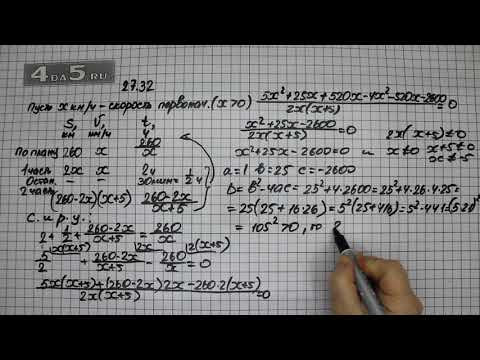 4DA5.RU
27.32
Пусть x км/ч – скорость первонач. (x>0)
S, км V, км/ч t, ч
По плану 260 x 260/x
1 част. 2x x 2ч
Остан. – – 30мин= 1/2 ч
2 част. (260-2x) (x+5) (260-2x)/(x+5)
С. и р. у.:
2 + 1/2 + (260-2x)/(x+5) = 260/x
5/2 + (260-2x)/(x+5) - 260/x = 0
(5x(x+5)+(260-2x)2x-260·2(x+5))/(2x(x+5)) = 0
(5x²+25x+520x-4x²-520x-2600)/(2x(x+5)) = 0
(x²+25x-2600)/(2x(x+5)) = 0 2x(x+5)≠0
x²+25x-2600=0 и x≠0 x+5≠0
x≠-5
a=1 b=25 c=-2600
D=b²-4ac=25²+4·2600=25²+4·26·4·25=
=25(25+16·26)=5²(25+416)=5²·441=(5·21)²
=105²>0, то